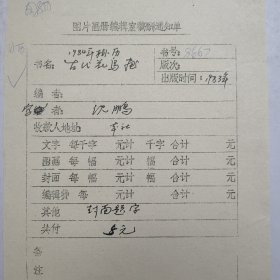 图片画册编辑室稿酬通知单
1984年挂历
书名：古代花鸟画
书号：5667
版次：
出版时间：1983年
编者：
著者：沈鹏
收款人地址：本社
文字 每千字 元计 千字 合计 元
图画 每 元计 幅 合计 元
封面 每 元计 幅 合计 元
编辑费 每 元计 合计 元
其他 封面题字
共付 5元
备注